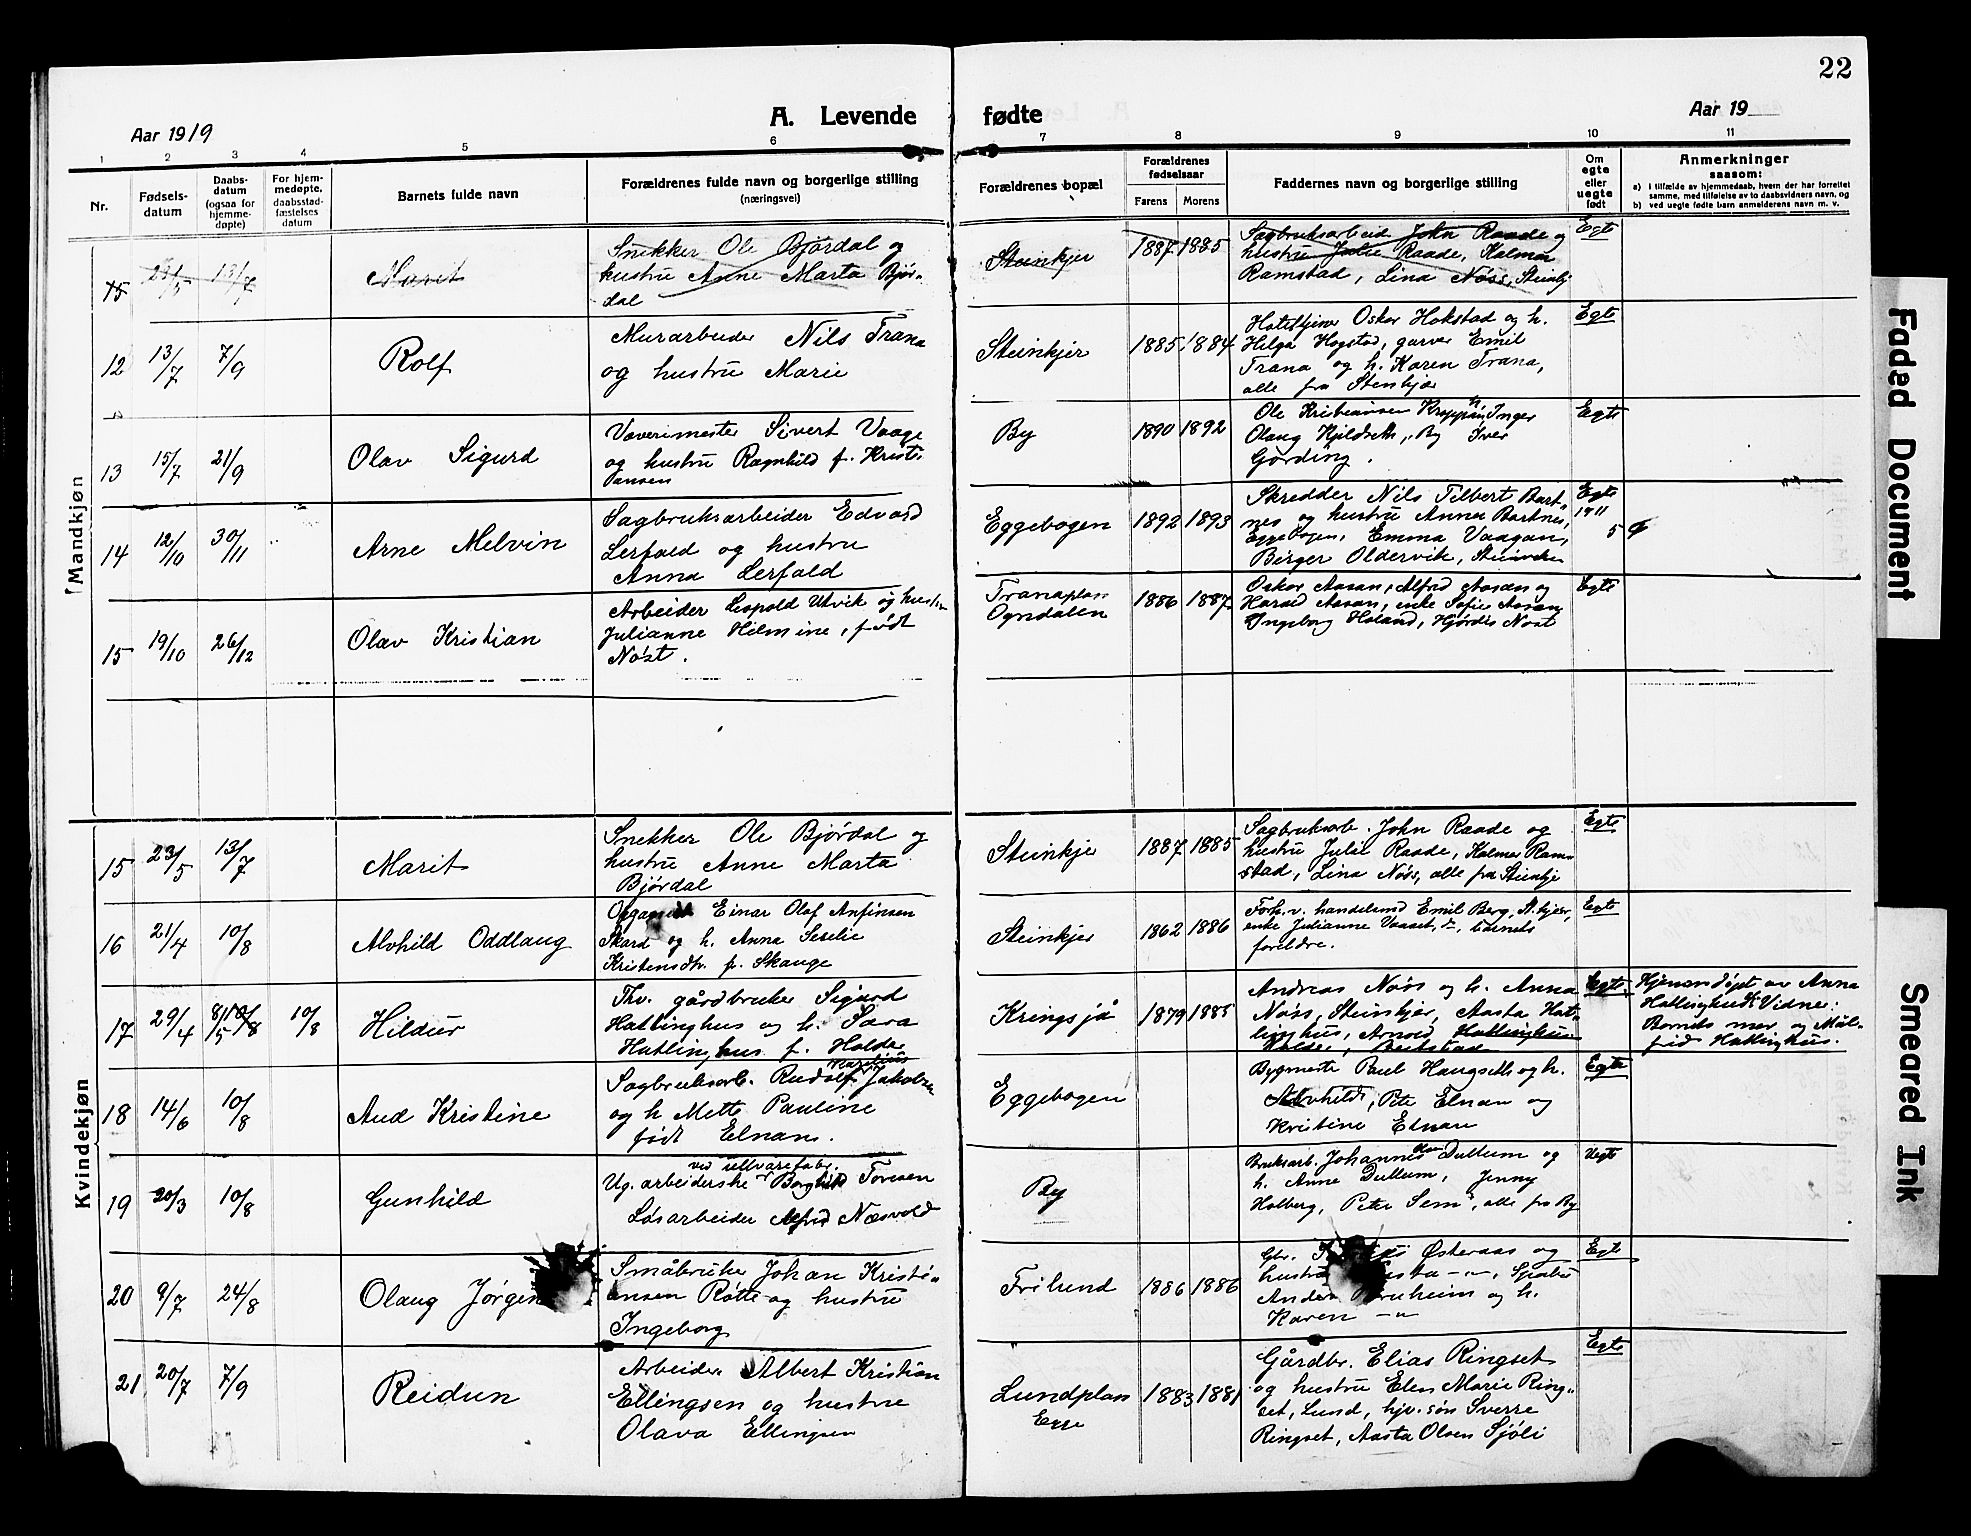 22
A. Levende fødte
Aar 1919
Aar 19
1 2 3 4 5 6 7 8 9 10 11
Nr.
Fødsels-
datum
Daabs-
datum
(ogsaa for
hjemme-
døpte)
For hjem-
medøpte,
daabsstad-
fæstelses
datum
Barnets fulde navn
Forældrenes fulde navn og borgerlige stilling
(næringsvei)
Forældrenes bopæl
Forældrenes
fødselsaar
Farens Morens
Faddernes navn og borgerlige stilling
Om
egte
eller
uegte
født
Anmerkninger
saasom:
a) i tilfælde av hjemmedaab, hvem der har forrettet
samme, med tilføielse av to daabsvidners navn, og
b) ved uegte født barn anmelderens navn m. v.
Mandkjøn
15 23/5 13/7 Marit
Snekker Ole Bjørdal og
hustru Anne Marta Bjør-
dal
Steinkjer 1887 1885
Sagbruksarbeid John Raade og
hustru Julie Raade, Kalmar
Ramstad, Lina Nøss, Steinkj
Egte
12 13/7 7/9 Rolf
Murarbeider Nils Trana
og hustru Marie
Steinkjer 1885 1884
Oskar Hokstad og h.
Helga Hogstad, garver Emil
Trana og h. Karen Trana,
alle fra Stenkjær
Egte
13 15/7 21/9 Olav Sigurd
Væverimester Sivert Vaage
og hustru Ragnhild f. Krist-
iansen
By 1890 1892
Ole Kristiansen Inger
Olaug By Iver
Gørding.
Egte
14 12/10 30/11 Arne Melvin
Sagbruksarbeider Edvard
Lerfald og hustru
Anna Lerfald
Eggebogen 1892 1893
Skredder Nils Tilbert Bart-
nes og hustru Anna Bartnes,
Eggebogen, Emma Vaagan,
Birger Oldervik,
Egte
1911
5
15 19/10 26/12 Olav Kristian
Arbeider Leopold Utvik og hustru
Julianne Hilmine, født
Nøst.
Tranaplass
Ogndalen 1886 1887
Oskar Aasan, Alfred Aasan og
Harald Aasan, enke Sofie Aasan
Ingeborg Holand, Hjørdis Nøst
Egte
Kvindekjøn
15 23/5 13/7 Marit
Snekker Ole Bjørdal og
hustru Anne Marta
Bjørdal
Steinkjer 1887 1885
Sagbruksarb. John Raade og
hustru Julie Raade, Kalmar Ram-
stad, Lina Nøss, alle fra Steinkje
Egte
16 21/4 10/8 Alvhild Oddlaug
Organist Einar Olaf Anfinsen
Skard og h. Anna Seselie
Kristensdtr. f. Skauge
Steinkjer 1862 1886
Foh. v. handelsmd Emil Berg, St.kjer,
enke Julianne barnets
foreldre.
Egte
17 29/4 8/5 10/8 10/8 Hildur
Thv. gårdbruker Sigurd
Hatlinghus og h. Sara
Hatlinghus f. Holder
Kringsjå 1879 1885
Andreas Nøss og h. Anna
Nøss, Steinkjer, Aasta Hat-
linghus, Arnold Hatlinghus
Holder, Beitstad
Egte
Hjemmedøpt av Anna
Hatlinghus. Vidne:
Barnets mor og Mål-
frid Hatlinghus.
18 14/6 10/8 Aud Kristine
Sagbruksarb. Rudolf Marius Jakobsen
og h Mette Pauline
født Elnan.
Eggebogen
Bygmester Paul Haugseth og h.
Alvhild, Pete Elnan og
Kristine Elnan
Egte
19 20/3 10/8 Gunhild
ved uldvarefabr.
Ug. arbeiderske Borghild Toresen
Løsarbeider Alfred Næsvold
By
Bruksarb. Johannes Dullum og
h. Anne Dullum, Jenny
Holberg, Peter Sem, alle fra By
Uegte
20 9/7 24/8 Olaug Jørgine
Småbruker Johan Kristi-
ansen Røtte og hustru
Ingeborg
Frilund 1886 1886
Gbr. Østeraas og
hustru
og h.
Karen —"—
Egte
21 20/7 7/9 Reidun
Arbeider Albert Kristian
Ellingsen og hustru
Olava Ellingsen
Lundplass
Egge 1883 1881
Gårdbr. Elias Ringset
og hustru Elen Marie Ring-
set, Lund, hjv. søn Sverre
Ringset, Aasta Olsen Sjøli
Egte
Faded Document
Smeared Ink